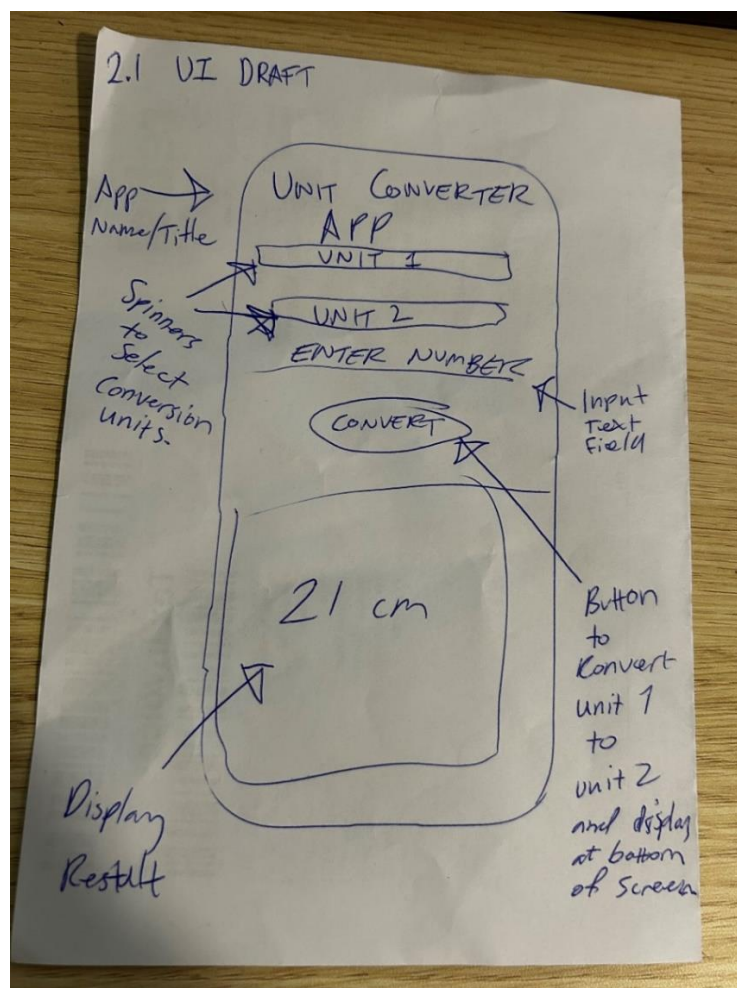 2.1 UI DRAFT
App
Name/Title
UNIT CONVERTER
APP
UNIT 1
UNIT 2
Spinners
to
Select
Conversion
units.
ENTER NUMBER
Input
Text
Field
CONVERT
21 cm
Button
to
Convert
unit 1
to
unit 2
and display
at bottom
of screen
Display
Result